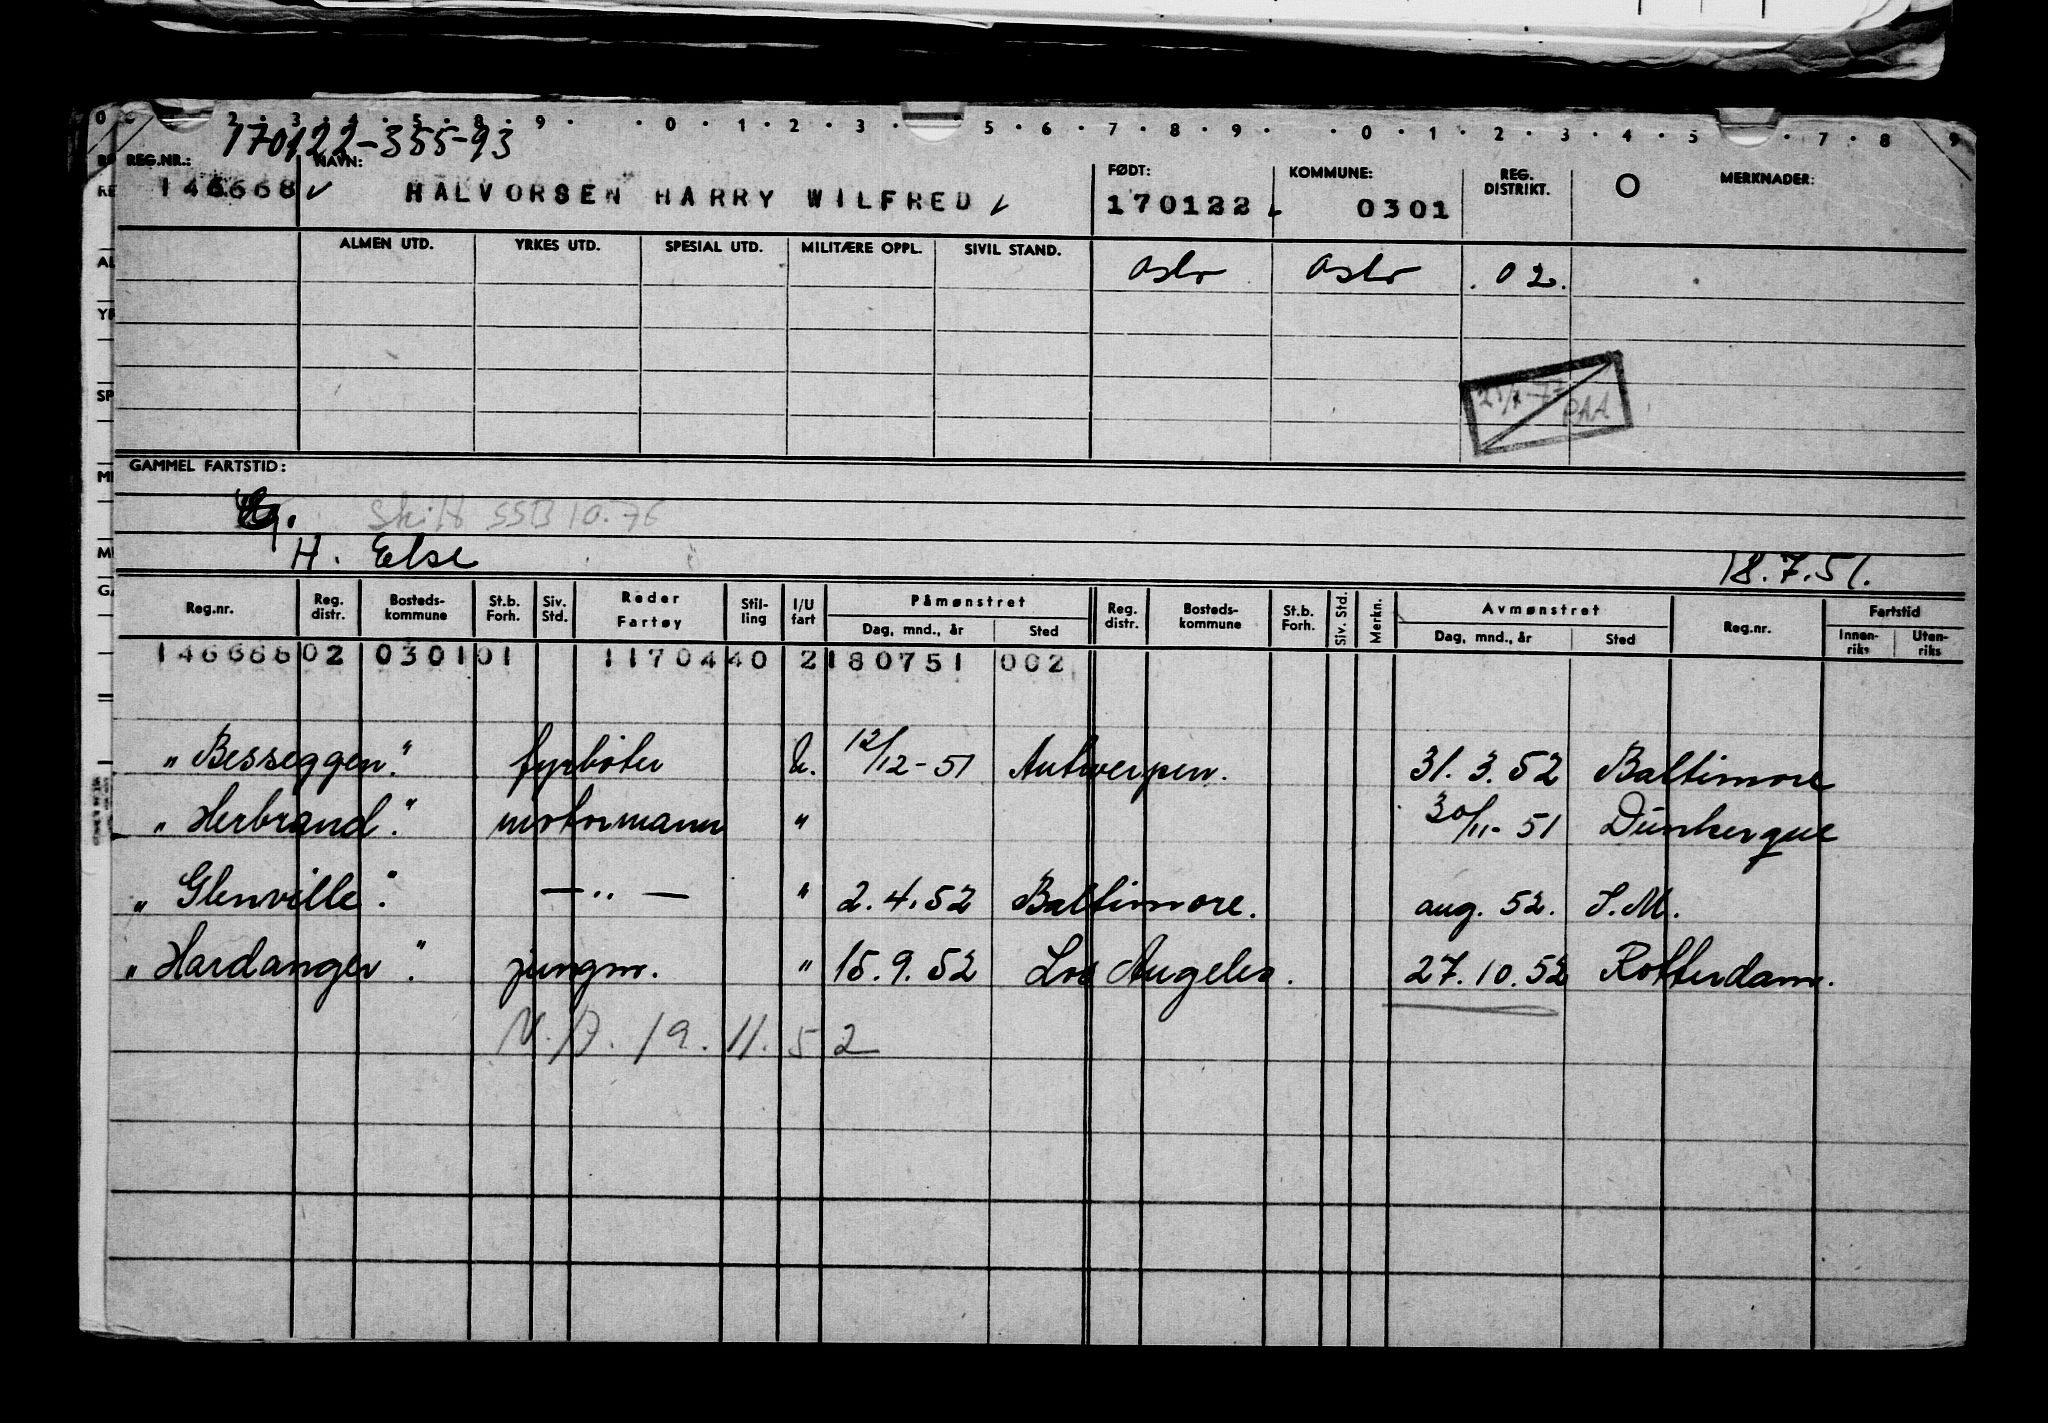 170122-355-93
REG.NR.: NAVN: FØDT: KOMMUNE: REG. DISTRIKT. O MERKNADER:
146668 HALVORSEN HARRY WILFRED 170122 0301
ALMEN UTD. YRKES UTD. SPESIAL UTD. MILITÆRE OPPL. SIVIL STAND. Oslo Oslo 02.
PAA
GAMMEL FARTSTID:
Skift SSB 10.76
H. Else 18.7.51.
Reg.nr. Reg. distr. Bosteds-kommune St.b. Forh. Siv. Std. Reder Fartøy Stil-ling I/U fart Påmønstret Reg. distr. Bosteds-kommune St.b. Forh. Siv. Std. Merkn. Avmønstret Reg.nr. Fartstid
Dag, mnd., år Sted Dag, mnd., år Sted Innen-riks Uten-riks
146668 02 0301 01 11704 40 2 180751 002
"Besseggen." fyrbøter U. 12/12-51 Antwerpen. 31.3.52 Baltimore
"Herbrand." motormann " 30/11-51 Dunkerque
"Glenville." — " — " 2.4.52 Baltimore. aug. 52. S.M.
"Hardanger." jungm. " 15.9.52 Los Angeles. 27.10.52 Rotterdam.
19.11.52